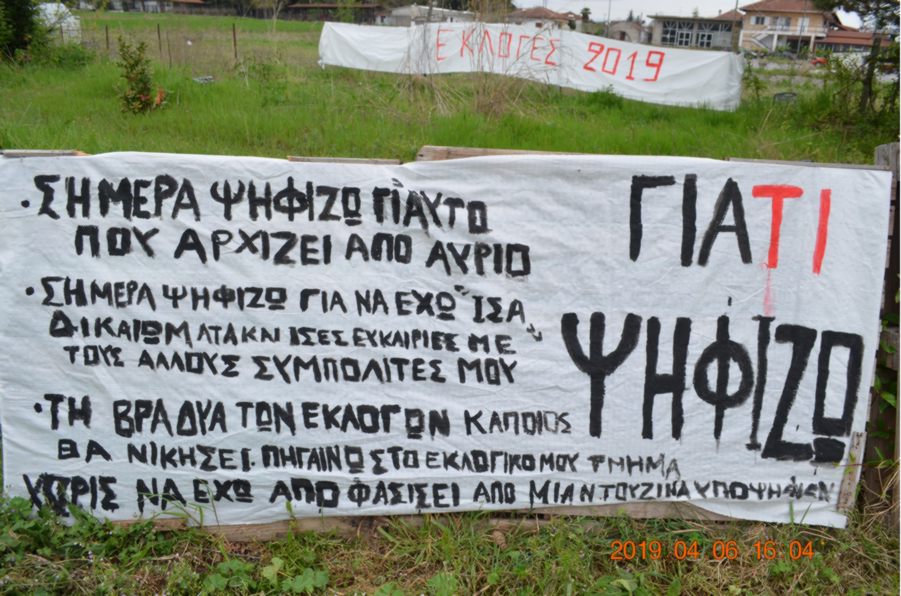 ΕΚΛΟΓΕΣ 2019
ΓΙΑΤΙ
ΨΗΦΙΖΩ
·ΣΗΜΕΡΑ ΨΗΦΙΖΩ ΓΙΑΥΤΟ
ΠΟΥ ΑΡΧΙΖΕΙ ΑΠΟ ΑΥΡΙΟ
·ΣΗΜΕΡΑ ΨΗΦΙΖΩ ΓΙΑ ΝΑ ΕΧΩ "ΙΣΑ
ΔΙΚΑΙΩΜΑΤΑ ΚΝ ΙΣΕΣ ΕΥΚΑΙΡΙΕΣ ΜΕ
ΤΟΥΣ ΑΛΛΟΥΣ ΣΥΜΠΟΛΙΤΕΣ ΜΟΥ
·ΤΗ ΒΡΑΔΥΑ ΤΩΝ ΕΚΛΟΓΩΝ ΚΑΠΟΙΟΣ
ΘΑ ΝΙΚΗΣΕΙ. ΠΗΓΑΙΝΩ ΣΤΟ ΕΚΛΟΓΙΚΟ ΜΟΥ ΤΜΗΜΑ
ΧΩΡΙΣ ΝΑ ΕΧΩ ΑΠΟΦΑΣΙΣΕΙ ΑΠΟ ΜΙΑ ΝΤΟΥΖΙΝΑ
2019 04 06 16:04